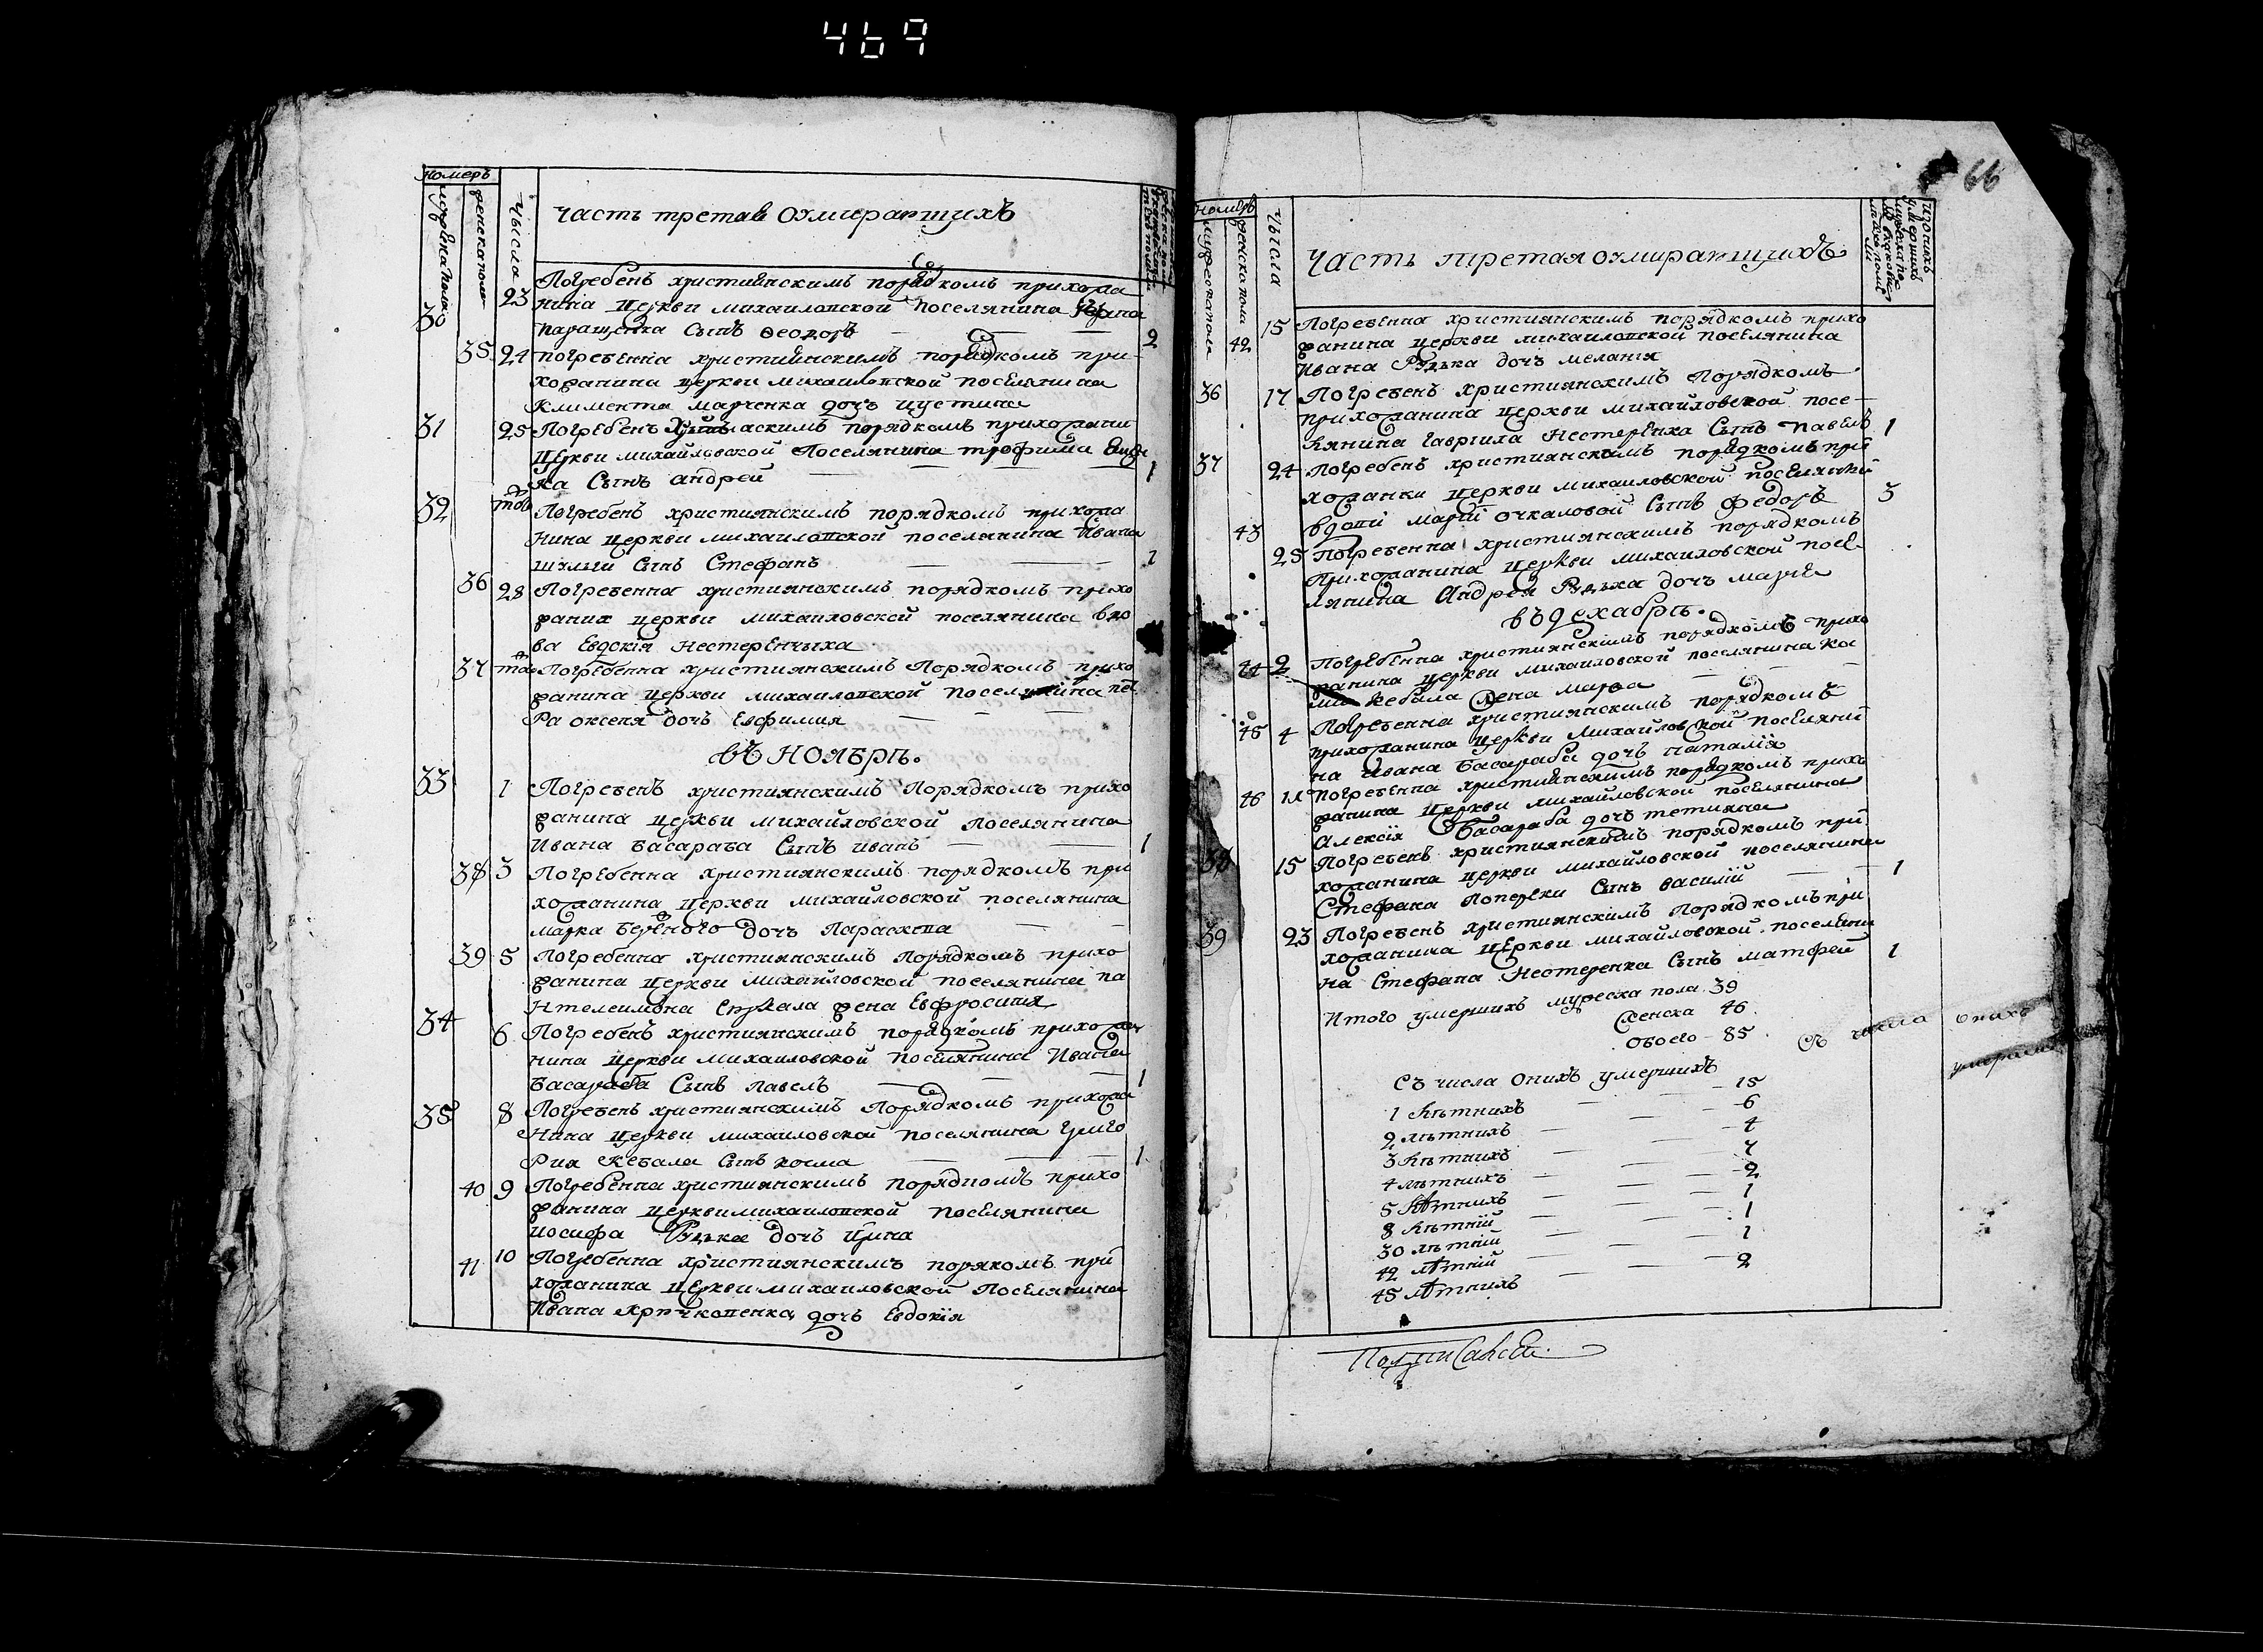 469
номеръ
мужеска пола
женска пола
Числа
часть третая оумирающихъ
30
23
Погребенъ християнскимъ порядкомъ прихожа
нина церкви михаиловской поселянина
паращенка Сынъ Ѳеодоръ
2
35
24
погребенна християнскимъ порядкомъ при
хожанина церкви михаиловской поселянина
Климента марченка дочъ иустина
31
25
Погребенъ порядкомъ прихожани
церкви михайловской Поселянина трофима
ка Сынъ андрей
1
32
тož
Погребенъ християнскимъ порядкомъ прихожа
нина церкви михаиловской поселянина Ивана
Сынъ Стефанъ
1
36
28
Погребенна християнскимъ порядкомъ прихо
жаних церкви михаиловской поселянина вдо
ва Евдокія Нестеренчыха
37
Погребенна християнскимъ Порядкомъ прихо
жанина церкви михаиловской поселянина пет
Ра оксеня дочъ Евфимия
въ Ноябрѣ.
33
1
Погребенъ християнскимъ Порядкомъ прихо
жанина церкви михайловской Поселянина
Ивана Басараба Сынъ иванъ
1
38
3
Погребенна християнскимъ порядкомъ при
хожанина церкви михайловской поселянина
марка дочъ Параскева
39
5
Погребенна християнскимъ порядкомъ прихо
жанина церкви михайловской поселянина па
нтелеимона жена Евфросиния
34
6
Погребенъ християнскимъ порядкомъ прихожа
нина церкви михаиловской поселянина Ивана
Басараба Сынъ павелъ
1
35
8
Погребенъ християнскимъ Порядкомъ прихожа
Нина церкви михаиловской поселянина Григо
Рия Кебала Сынъ косма
1
40
9
Погребенна християнскимъ порядкомъ прихо
жанина церкви михаиловской поселянина
иосифа Рудька дочъ ирина
41
10
Погребенна християнскимъ порякомъ при
хожанина церкви михаиловской Поселянина
Ивана дочъ Евдокія
66
номеръ
мужеска пола
женска пола
Числа
Часть третая оумирающихъ
42
15
Погребенна християнскимъ порядкомъ прихо
жанина церкви михаиловской поселянина
Ивана Рудька дочъ мелания
36
17
Погребенъ християнскимъ Порядкомъ
прихожанина церкви михайловской посе
лянина гавриила Нестеренка Сынъ павелъ
1
37
24
Погребенъ християнскимъ порядкомъ при
хожанки церкви михаиловской поселянки
вдови марии очкаловой Сынъ Федоръ
3
43
25
Погребенна християнскимъ порядкомъ
Прихожанина церкви михаиловской посе
лянина Андрея Рудька дочъ
въ декабрѣ.
44
2
Погребенна християнскимъ порядкомъ прихо
жанина церкви михаиловской поселянина Ко
Кебала жена марѳа
45
4
Погребенна християнскимъ порядкомъ
прихожанина церкви михайловской поселяни
на ивана Басараба дочъ наталія
46
Погребенна християнскимъ порядкомъ прихо
жанина церкви михайловской поселянина
Алексія Басараба дочъ тетияна
38
15
Погребенъ християнскимъ порядкомъ при
хожанина церкви михайловской поселянина
Стефана Попереки Сынъ василій
1
39
23
Погребенъ християнскимъ Порядкомъ при
хожанина церкви михайловской поселяни
на Стефана Нестеренка Сынъ матфей
1
Итого умершихъ мужеска пола 39
женска 46
обоего - 85
Съ числа онихъ
Съ числа Онихъ умершихъ
1 лѣтнихъ — 15
2 лѣтнихъ — 6
3 лѣтнихъ — 4
4 лѣтнихъ — 7
5 лѣтнихъ — 2
8 лѣтній — 1
30 лѣтній — 1
42 лѣтній — 1
45 лѣтнихъ — 2